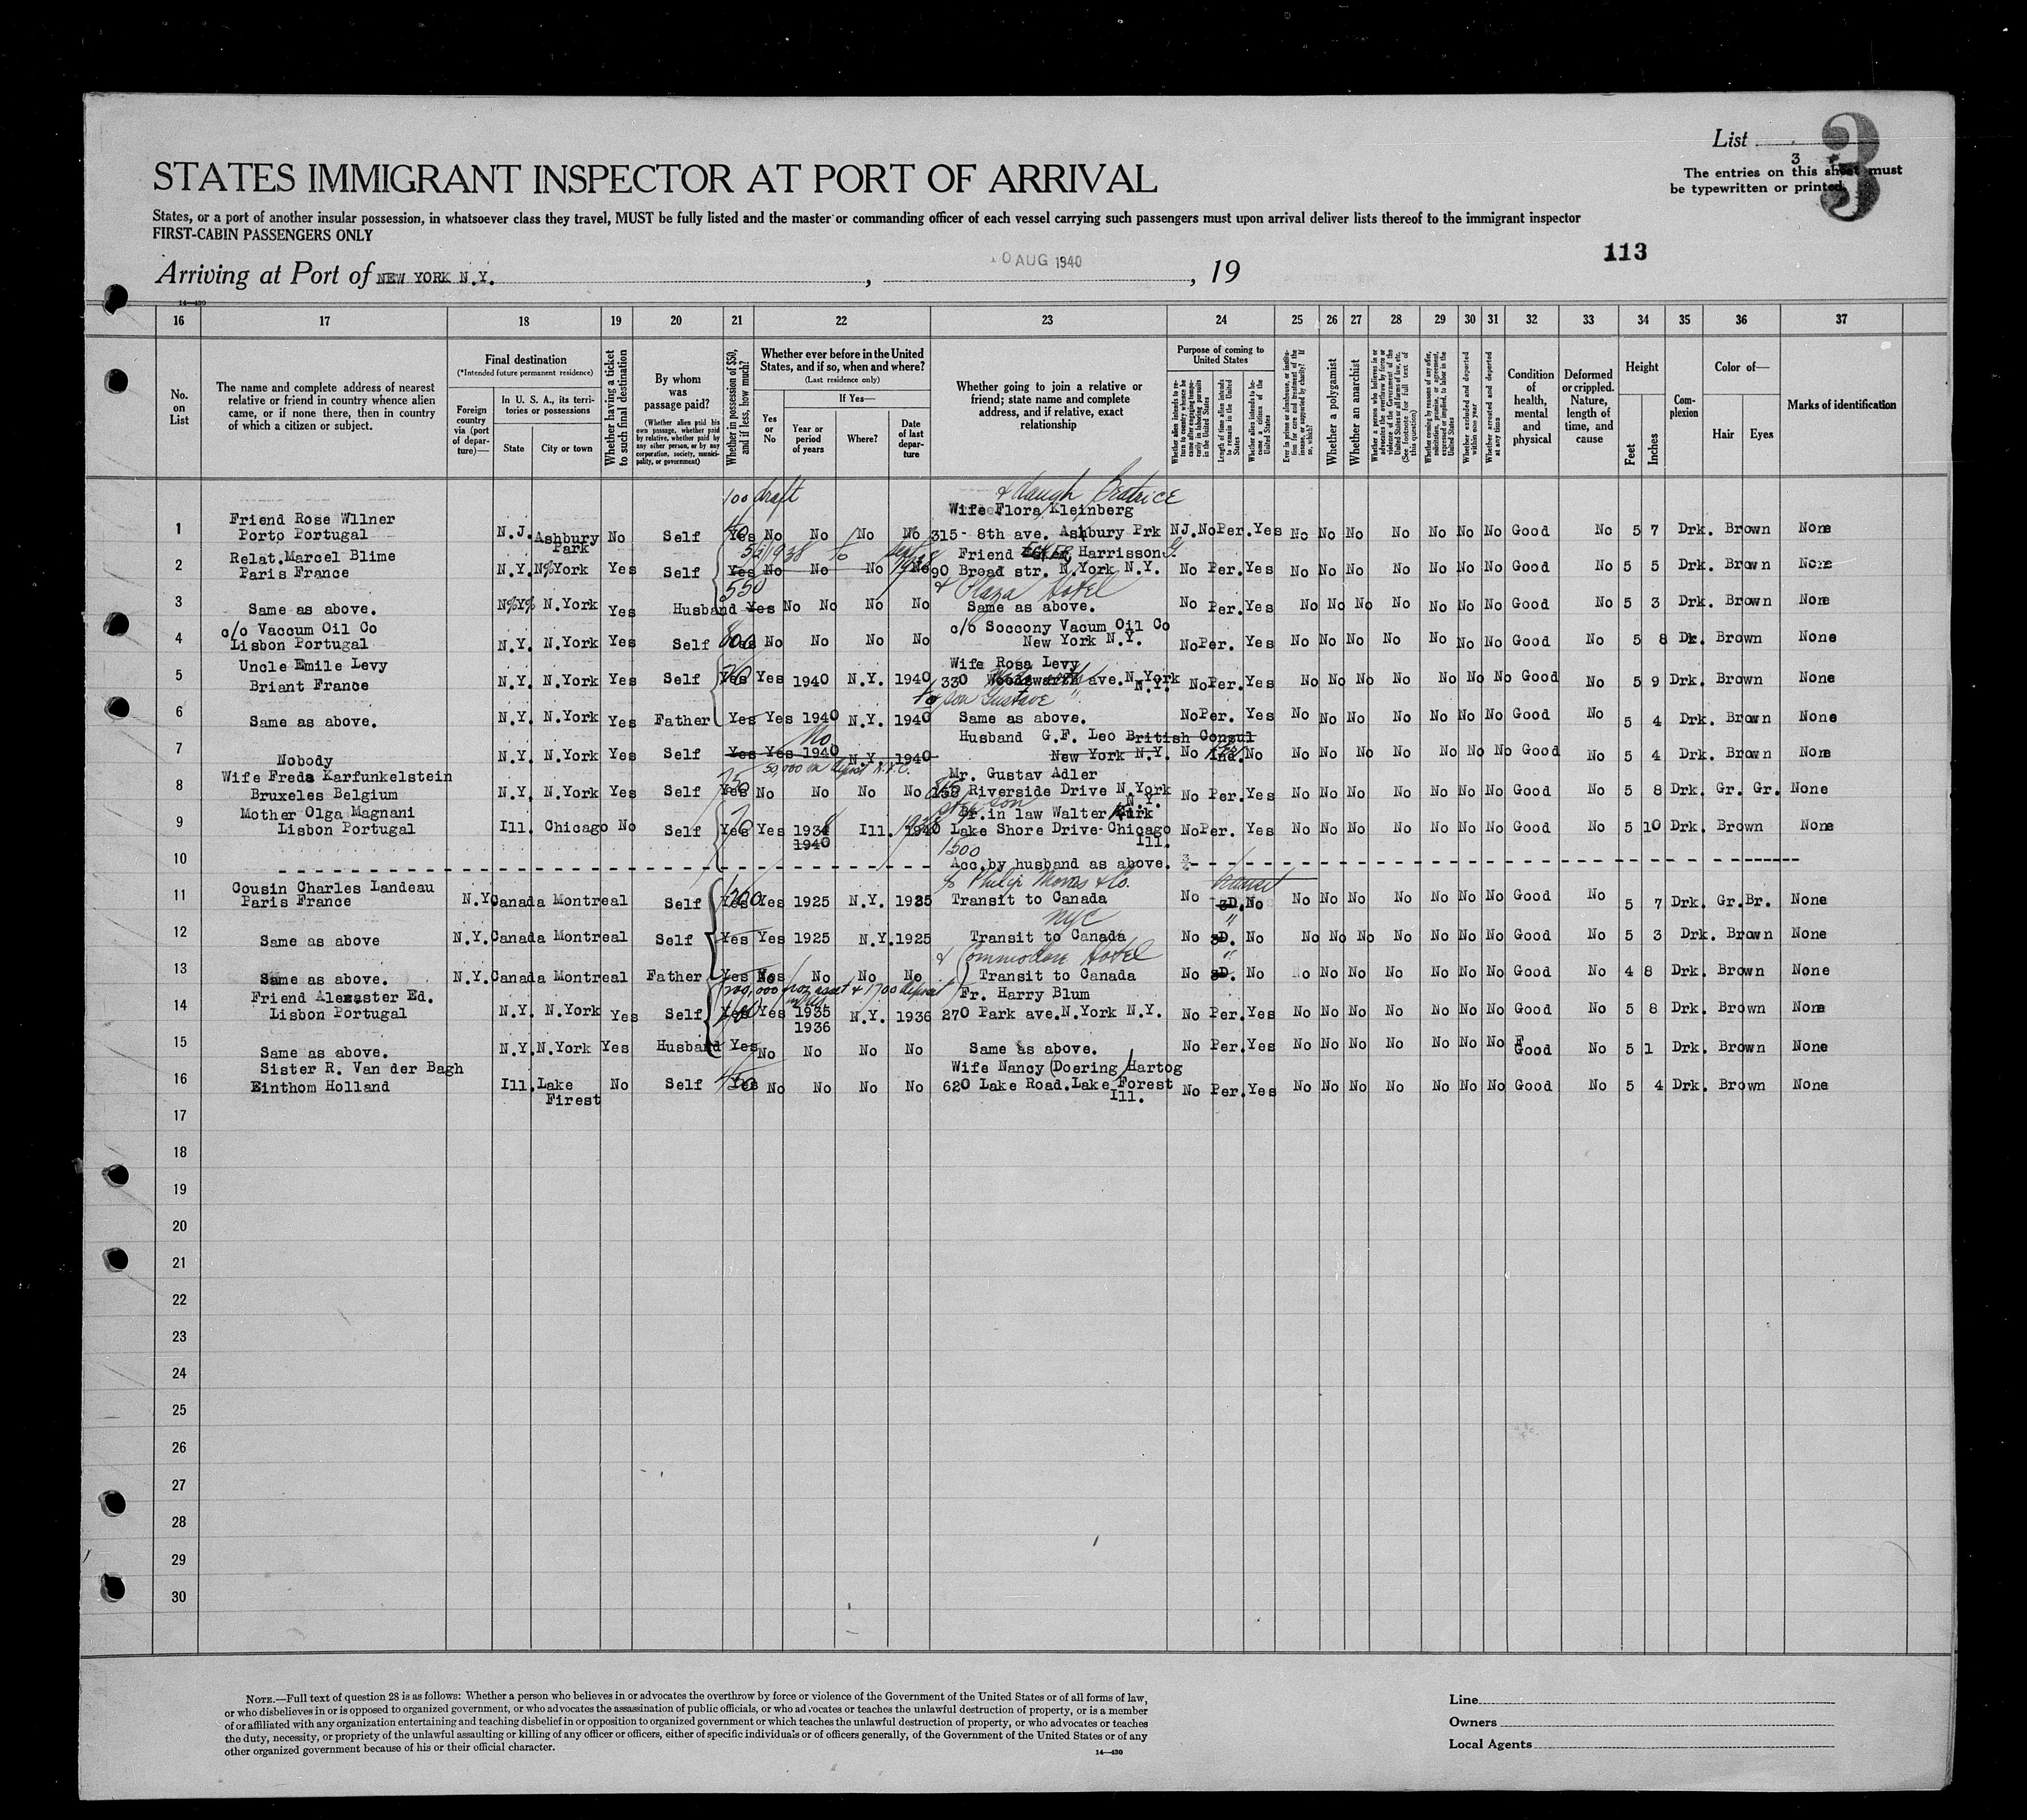 List
3
3
The entries on this sheet must
be typewritten or printed.
STATES IMMIGRANT INSPECTOR AT PORT OF ARRIVAL
States, or a port of another insular possession, in whatsoever class they travel, MUST be fully listed and the master or commanding officer of each vessel carrying such passengers must upon arrival deliver lists thereof to the immigrant inspector
FIRST-CABIN PASSENGERS ONLY
113
Arriving at Port of NEW YORK N.Y. , 0 AUG 1940 , 19
14—430
16 17 18 19 20 21 22 23 24 25 26 27 28 29 30 31 32 33 34 35 36 37
No. on List
The name and complete address of nearest relative or friend in country whence alien came, or if none there, then in country of which a citizen or subject.
Final destination
(*Intended future permanent residence)
Foreign country via (port of departure)—
In U. S. A., its territories or possessions
State
City or town
Whether having a ticket to such final destination
By whom was passage paid?
(Whether alien paid his own passage, whether paid by relative, whether paid by any other person, or by any corporation, society, municipality, or government)
Whether in possession of $50, and if less, how much?
Whether ever before in the United States, and if so, when and where?
(Last residence only)
Yes or No
If Yes—
Year or period of years
Where?
Date of last departure
Whether going to join a relative or friend; state name and complete address, and if relative, exact relationship
Purpose of coming to United States
Whether alien intends to return to country whence he came after engaging temporarily in laboring pursuits in the United States
Length of time alien intends to remain in the United States
Whether alien intends to become a citizen of the United States
Ever in prison or almshouse, or institution for care and treatment of the insane, or supported by charity? If so, which?
Whether a polygamist
Whether an anarchist
Whether a person who believes in or advocates the overthrow by force or violence of the Government of the United States or of all forms of law, etc. (See footnote for full text of this question)
Whether coming by reasons of any offer, solicitation, promise, or agreement, expressed or implied, to labor in the United States
Whether excluded and deported within one year
Whether arrested and deported at any time
Condition of health, mental and physical
Deformed or crippled. Nature, length of time, and cause
Height
Feet
Inches
Complexion
Color of—
Hair
Eyes
Marks of identification
100 draft & daugh Beatrice
Friend Rose Wllner Wife Flora Kleinberg
1 Porto Portugal N.J. Ashbury Park No Self Yes No No No No 315- 8th ave. Ashbury Prk N.J. No Per. Yes No No No No No No No Good No 5 7 Drk. Brown None
Relat. Marcel Blime 1938 Friend Harrisson
2 Paris France N.Y. N%York Yes Self Yes No No No No 90 Broad str. N.York N.Y. No Per. Yes No No No No No No No Good No 5 5 Drk. Brown None
550 & Plaza Hotel
3 Same as above. N%Y% N.York Yes Husband Yes No No No No Same as above. No Per. Yes No No No No No No No Good No 5 3 Drk. Brown None
c/o Vaccum Oil Co c/o Soccony Vacum Oil Co
4 Lisbon Portugal N.Y. N.York Yes Self Yes No No No No New York N.Y. No Per. Yes No No No No No No No Good No 5 8 Dk. Brown None
Uncle Emile Levy Wife Rosa Levy
5 Briant France N.Y. N.York Yes Self Yes Yes 1940 N.Y. 1940 330 Woodswarth ave. N.York N.Y. No Per. Yes No No No No No No No Good No 5 9 Drk. Brown None
& son Gustave "
6 Same as above. N.Y. N.York Yes Father Yes Yes 1940 N.Y. 1940 Same as above. No Per. Yes No No No No No No No Good No 5 4 Drk. Brown None
No Husband G.F. Leo British Consul
7 Nobody N.Y. N.York Yes Self Yes Yes 1940 N.Y. 1940 New York N.Y. No Ind. No No No No No No No No Good No 5 4 Drk. Brown None
Wife Freda Karfunkelstein 50,000 on deposit N.Y.C. Mr. Gustav Adler
8 Bruxeles Belgium N.Y. N.York Yes Self Yes No No No No Riverside Drive N.York N.Y. No Per. Yes No No No No No No No Good No 5 8 Drk. Gr. Gr. None
Mother Olga Magnani in law Walter Kirk
9 Lisbon Portugal Ill. Chicago No Self Yes Yes 1938 1940 Ill. 1940 Lake Shore Drive- Chicago Ill. No Per. Yes No No No No No No No Good No 5 10 Drk. Brown None
1500
10 Acc. by husband as above.
Cousin Charles Landeau c/o Philip Morris & Co. transit
11 Paris France N.Y. Canada Montreal Self Yes Yes 1925 N.Y. 1925 Transit to Canada No 3D. No No No No No No No No Good No 5 7 Drk. Gr. Br. None
NYC "
12 Same as above N.Y. Canada Montreal Self Yes Yes 1925 N.Y. 1925 Transit to Canada No 3D. No No No No No No No No Good No 5 3 Drk. Brown None
& Commodore Hotel "
13 Same as above. N.Y. Canada Montreal Father Yes No No No No Transit to Canada No 3D. No No No No No No No No Good No 4 8 Drk. Brown None
Friend Alemaster Ed. Fr. Harry Blum
14 Lisbon Portugal N.Y. N.York Yes Self Yes Yes 1935 1936 N.Y. 1936 270 Park ave. N.York N.Y. No Per. Yes No No No No No No No Good No 5 8 Drk. Brown None
15 Same as above. N.Y. N.York Yes Husband Yes No No No No Same as above. No Per. Yes No No No No No No No Good No 5 1 Drk. Brown None
Sister R. Van der Bagh Wife Nancy (Doering) Hartog
16 Einthom Holland Ill. Lake Firest No Self Yes No No No No 620 Lake Road. Lake Forest Ill. No Per. Yes No No No No No No No Good No 5 4 Drk. Brown None
17
18
19
20
21
22
23
24
25
26
27
28
29
30
NOTE.—Full text of question 28 is as follows: Whether a person who believes in or advocates the overthrow by force or violence of the Government of the United States or of all forms of law,
or who disbelieves in or is opposed to organized government, or who advocates the assassination of public officials, or who advocates or teaches the unlawful destruction of property, or is a member
of or affiliated with any organization entertaining and teaching disbelief in or opposition to organized government or which teaches the unlawful destruction of property, or who advocates or teaches
the duty, necessity, or propriety of the unlawful assaulting or killing of any officer or officers, either of specific individuals or of officers generally, of the Government of the United States or of any
other organized government because of his or their official character.
14—430
Line
Owners
Local Agents